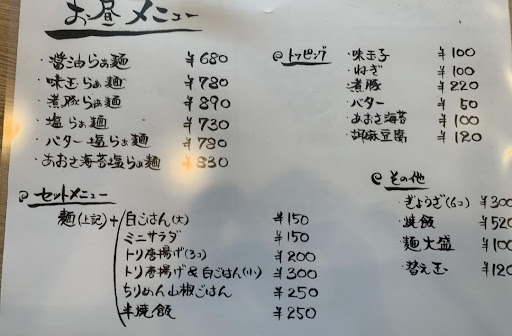 お昼メニュー
・醤油らぁ麺 ¥680
・味玉らぁ麺 ¥780
・煮豚らぁ麺 ¥890
・塩らぁ麺 ¥730
・バター塩らぁ麺 ¥780
・あおさ海苔塩らぁ麺 ¥830
◎セットメニュー
麺(上記)+
白ごはん(大) ¥150
ミニサラダ ¥150
トリ唐揚げ(3コ) ¥200
トリ唐揚げ&白ごはん(小) ¥300
ちりめん山椒ごはん ¥250
半焼飯 ¥250
◎トッピング
・味玉子 ¥100
・ねぎ ¥100
・煮豚 ¥220
・バター ¥50
・あおさ海苔 ¥100
・胡麻豆腐 ¥120
◎その他
・ぎょうざ(6コ) ¥300
・焼飯 ¥520
・麺大盛 ¥100
・替え玉 ¥120